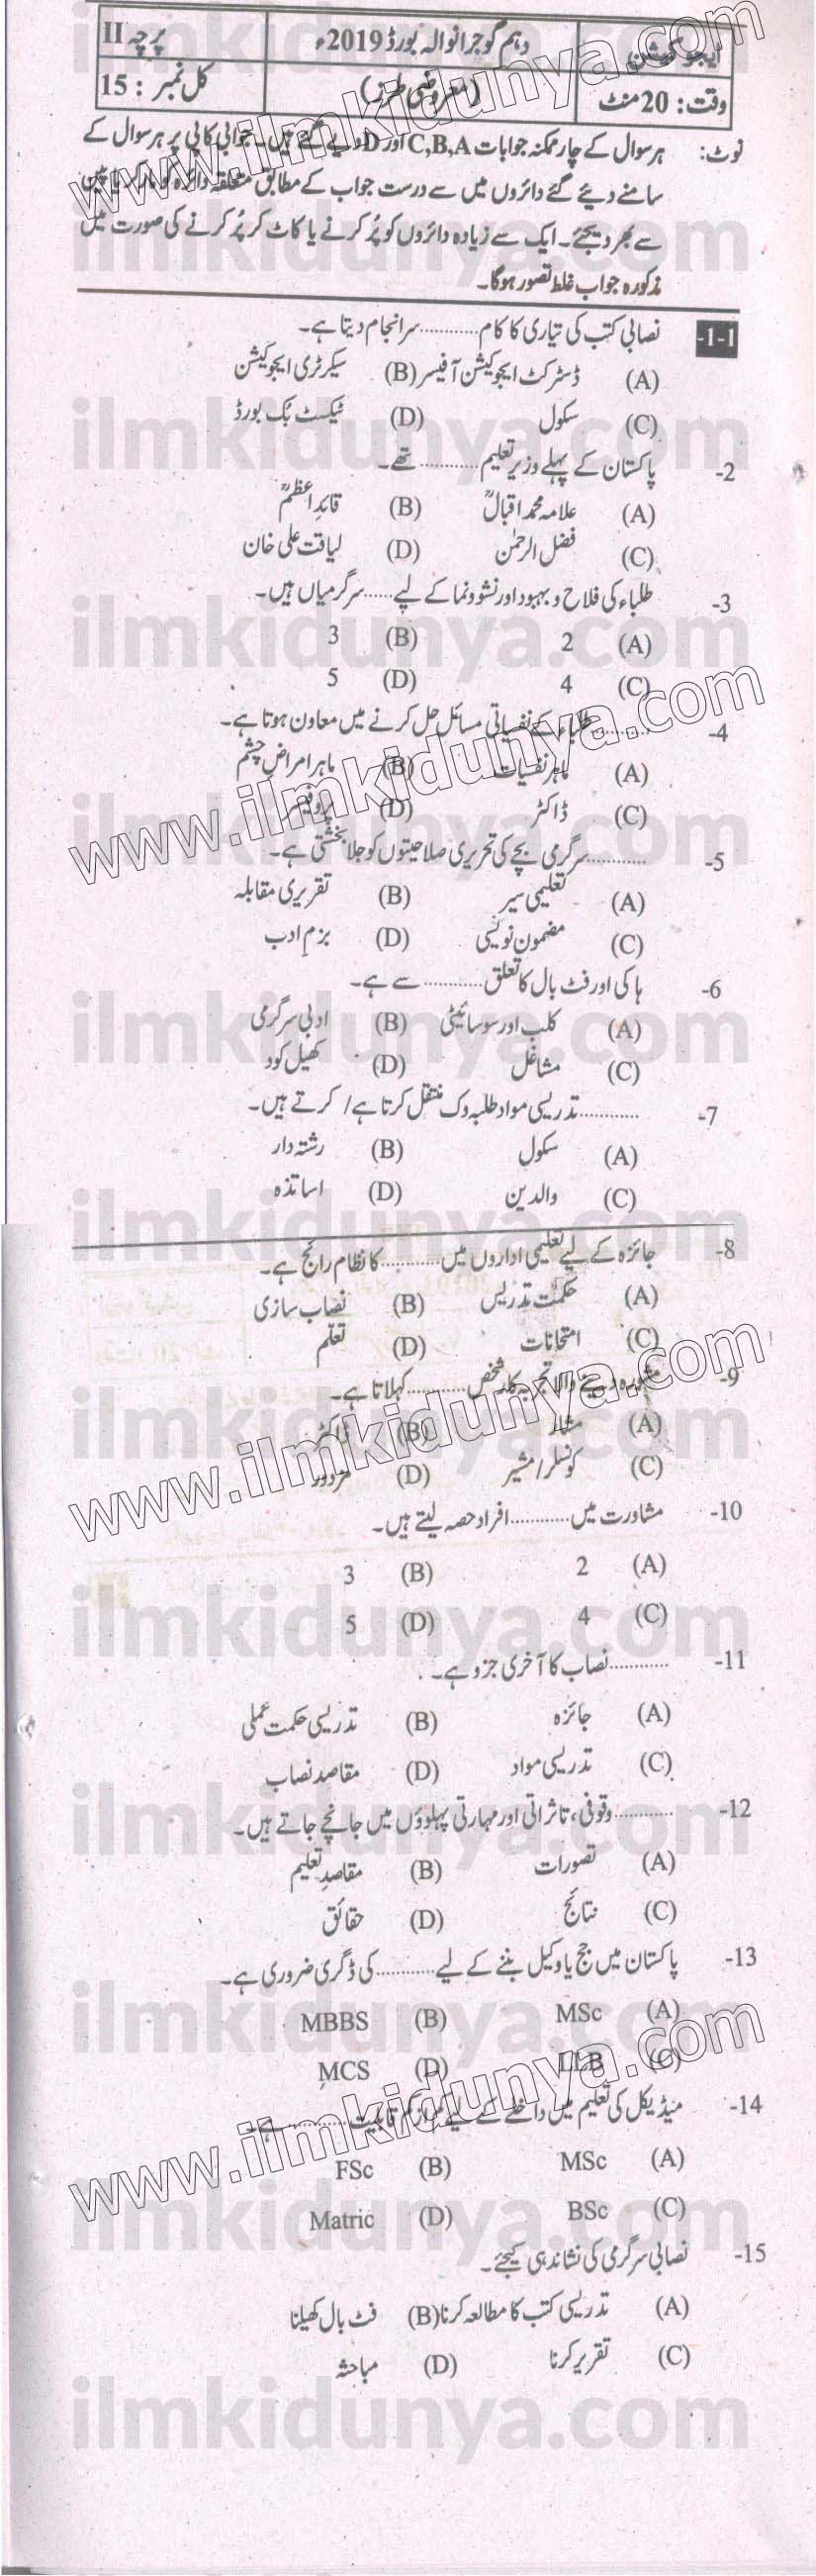 ایجوکیشن دہم گوجرانوالہ بورڈ 2019ء پرچہ II
وقت: 20 منٹ (معروضی طرز) کل نمبر: 15
نوٹ: ہر سوال کے چار ممکنہ جوابات C,B,A اور D دیے گئے ہیں۔ جوابی کاپی پر ہر سوال کے
سامنے دیئے گئے دائروں میں سے درست جواب کے مطابق متعلقہ دائرہ کو مارکر یا پین
سے بھر دیجئے۔ ایک سے زیادہ دائروں کو پُر کرنے یا کاٹ کر پُر کرنے کی صورت میں
مذکورہ جواب غلط تصور ہوگا۔
1-1- نصابی کتب کی تیاری کا کام ........... سرانجام دیتا ہے۔
(A) ڈسٹرکٹ ایجوکیشن آفیسر (B) سیکرٹری ایجوکیشن
(C) سکول (D) ٹیکسٹ بک بورڈ
2- پاکستان کے پہلے وزیر تعلیم ........... تھے۔
(A) علامہ محمد اقبالؒ (B) قائدِ اعظمؒ
(C) فضل الرحمٰن (D) لیاقت علی خان
3- طلباء کی فلاح و بہبود اور نشوونما کے لیے ...... سرگرمیاں ہیں۔
(A) 2 (B) 3
(C) 4 (D) 5
4- ........... طلباء کے نفسیاتی مسائل حل کرنے میں معاون ہوتا ہے۔
(A) ماہر نفسیات (B) ماہر امراضِ چشم
(C) ڈاکٹر (D) پروفیسر
5- ........... سرگرمی بچے کی تحریری صلاحیتوں کو جلا بخشتی ہے۔
(A) تعلیمی سیر (B) تقریری مقابلہ
(C) مضمون نویسی (D) بزمِ ادب
6- ہاکی اور فٹ بال کا تعلق ........... سے ہے۔
(A) کلب اور سوسائیٹی (B) ادبی سرگرمی
(C) مشاغل (D) کھیل کود
7- ........... تدریسی مواد طلبہ وک منتقل کرتا ہے/ کرتے ہیں۔
(A) سکول (B) رشتہ دار
(C) والدین (D) اساتذہ
8- جائزہ کے لیے تعلیمی اداروں میں ........... کا نظام رائج ہے۔
(A) حکمت تدریس (B) نصاب سازی
(C) امتحانات (D) تعلّم
9- مشورہ دینے والا تجربہ کار شخص ........... کہلاتا ہے۔
(A) مشار (B) ڈاکٹر
(C) کونسلر/مشیر (D) مزدور
10- مشاورت میں ........... افراد حصہ لیتے ہیں۔
(A) 2 (B) 3
(C) 4 (D) 5
11- ........... نصاب کا آخری جزو ہے۔
(A) جائزہ (B) تدریسی حکمت عملی
(C) تدریسی مواد (D) مقاصد نصاب
12- ........... وقوفی، تاثراتی اور مہارتی پہلوؤں میں جانچے جاتے ہیں۔
(A) تصورات (B) مقاصدِ تعلیم
(C) نتائج (D) حقائق
13- پاکستان میں جج یا وکیل بننے کے لیے ........... کی ڈگری ضروری ہے۔
(A) MSc (B) MBBS
(C) LLB (D) MCS
14- میڈیکل کی تعلیم میں داخلے کے لیے کم از کم قابلیت ........... ہے۔
(A) MSc (B) FSc
(C) BSc (D) Matric
15- نصابی سرگرمی کی نشاندہی کیجئے۔
(A) تدریسی کتب کا مطالعہ کرنا (B) فٹ بال کھیلنا
(C) تقریر کرنا (D) مباحثہ